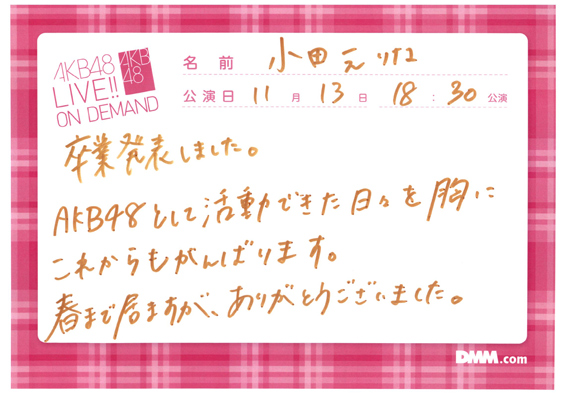 AKB48
LIVE!!
ON DEMAND
AKB
48
名前 小田えりな
公演日 11月13日 18:30公演
卒業発表しました。
AKB48として活動できた日々を胸に
これからもがんばります。
春まで居ますが、ありがとうございました。
DMM.com